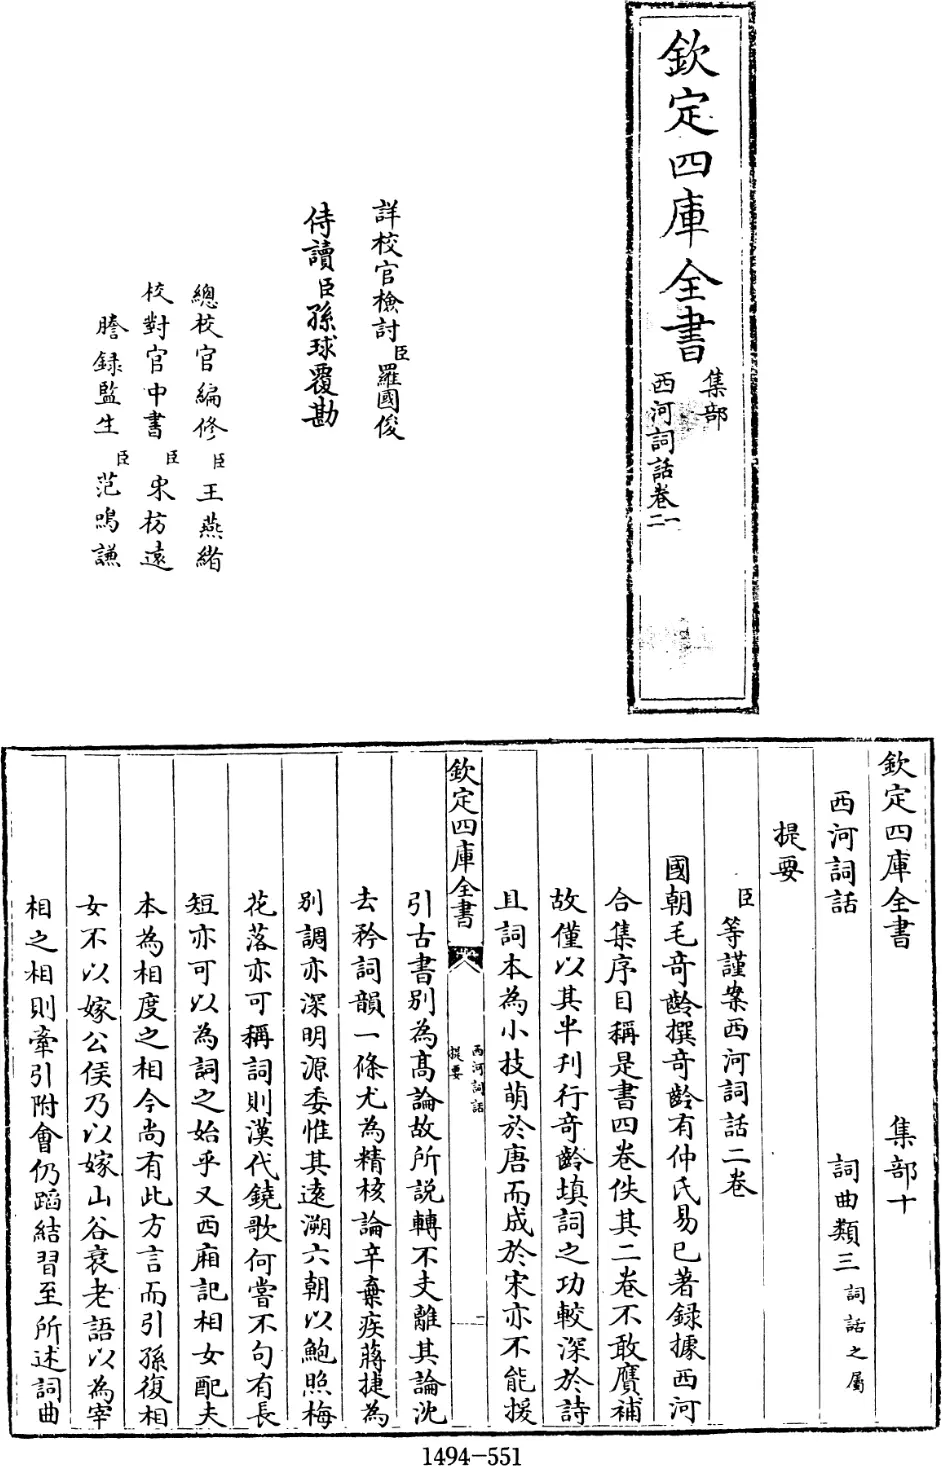 欽定四庫全書
集部
西河詞話卷一
二
詳校官檢討臣羅國俊
侍讀臣孫球覆勘
總校官編修臣王燕緒
校對官中書臣宋枋遠
謄錄監生臣范鳴謙
欽定四庫全書 集部十
西河詞話 詞曲類三詞話之屬
提要
臣等謹案西河詞話二卷
國朝毛奇齡撰奇齡有仲氏易已著錄據西河
合集序目稱是書四卷佚其二卷不敢贗補
故僅以其半刊行奇齡填詞之功較深於詩
且詞本為小技萌於唐而成於宋亦不能援
欽定四庫全書
西河詞話
提要
二
引古書別為髙論故所説轉不支離其論沈
去矜詞韻一條尤為精核論辛棄疾蔣捷為
別調亦深明源委惟其遠溯六朝以鮑照梅
花落亦可稱詞則漢代鐃歌何嘗不句有長
短亦可以為詞之始乎又西廂記相女配夫
本為相度之相今尚有此方言而引孫復相
女不以嫁公侯乃以嫁山谷衰老語以為宰
相之相則牽引附會仍蹈結習至所述詞曲
1494-551